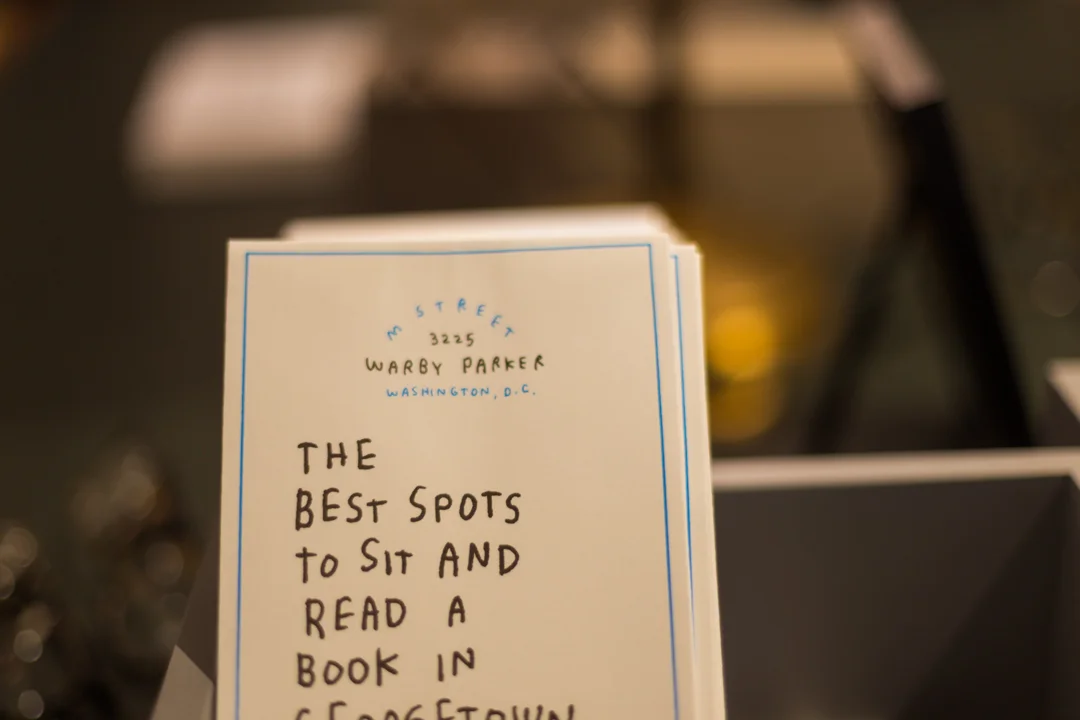 M STREET
3225
WARBY PARKER
WASHINGTON, D.C.
THE
BEST SPOTS
to SIT AND
READ A
BOOK IN
GEORGETOWN